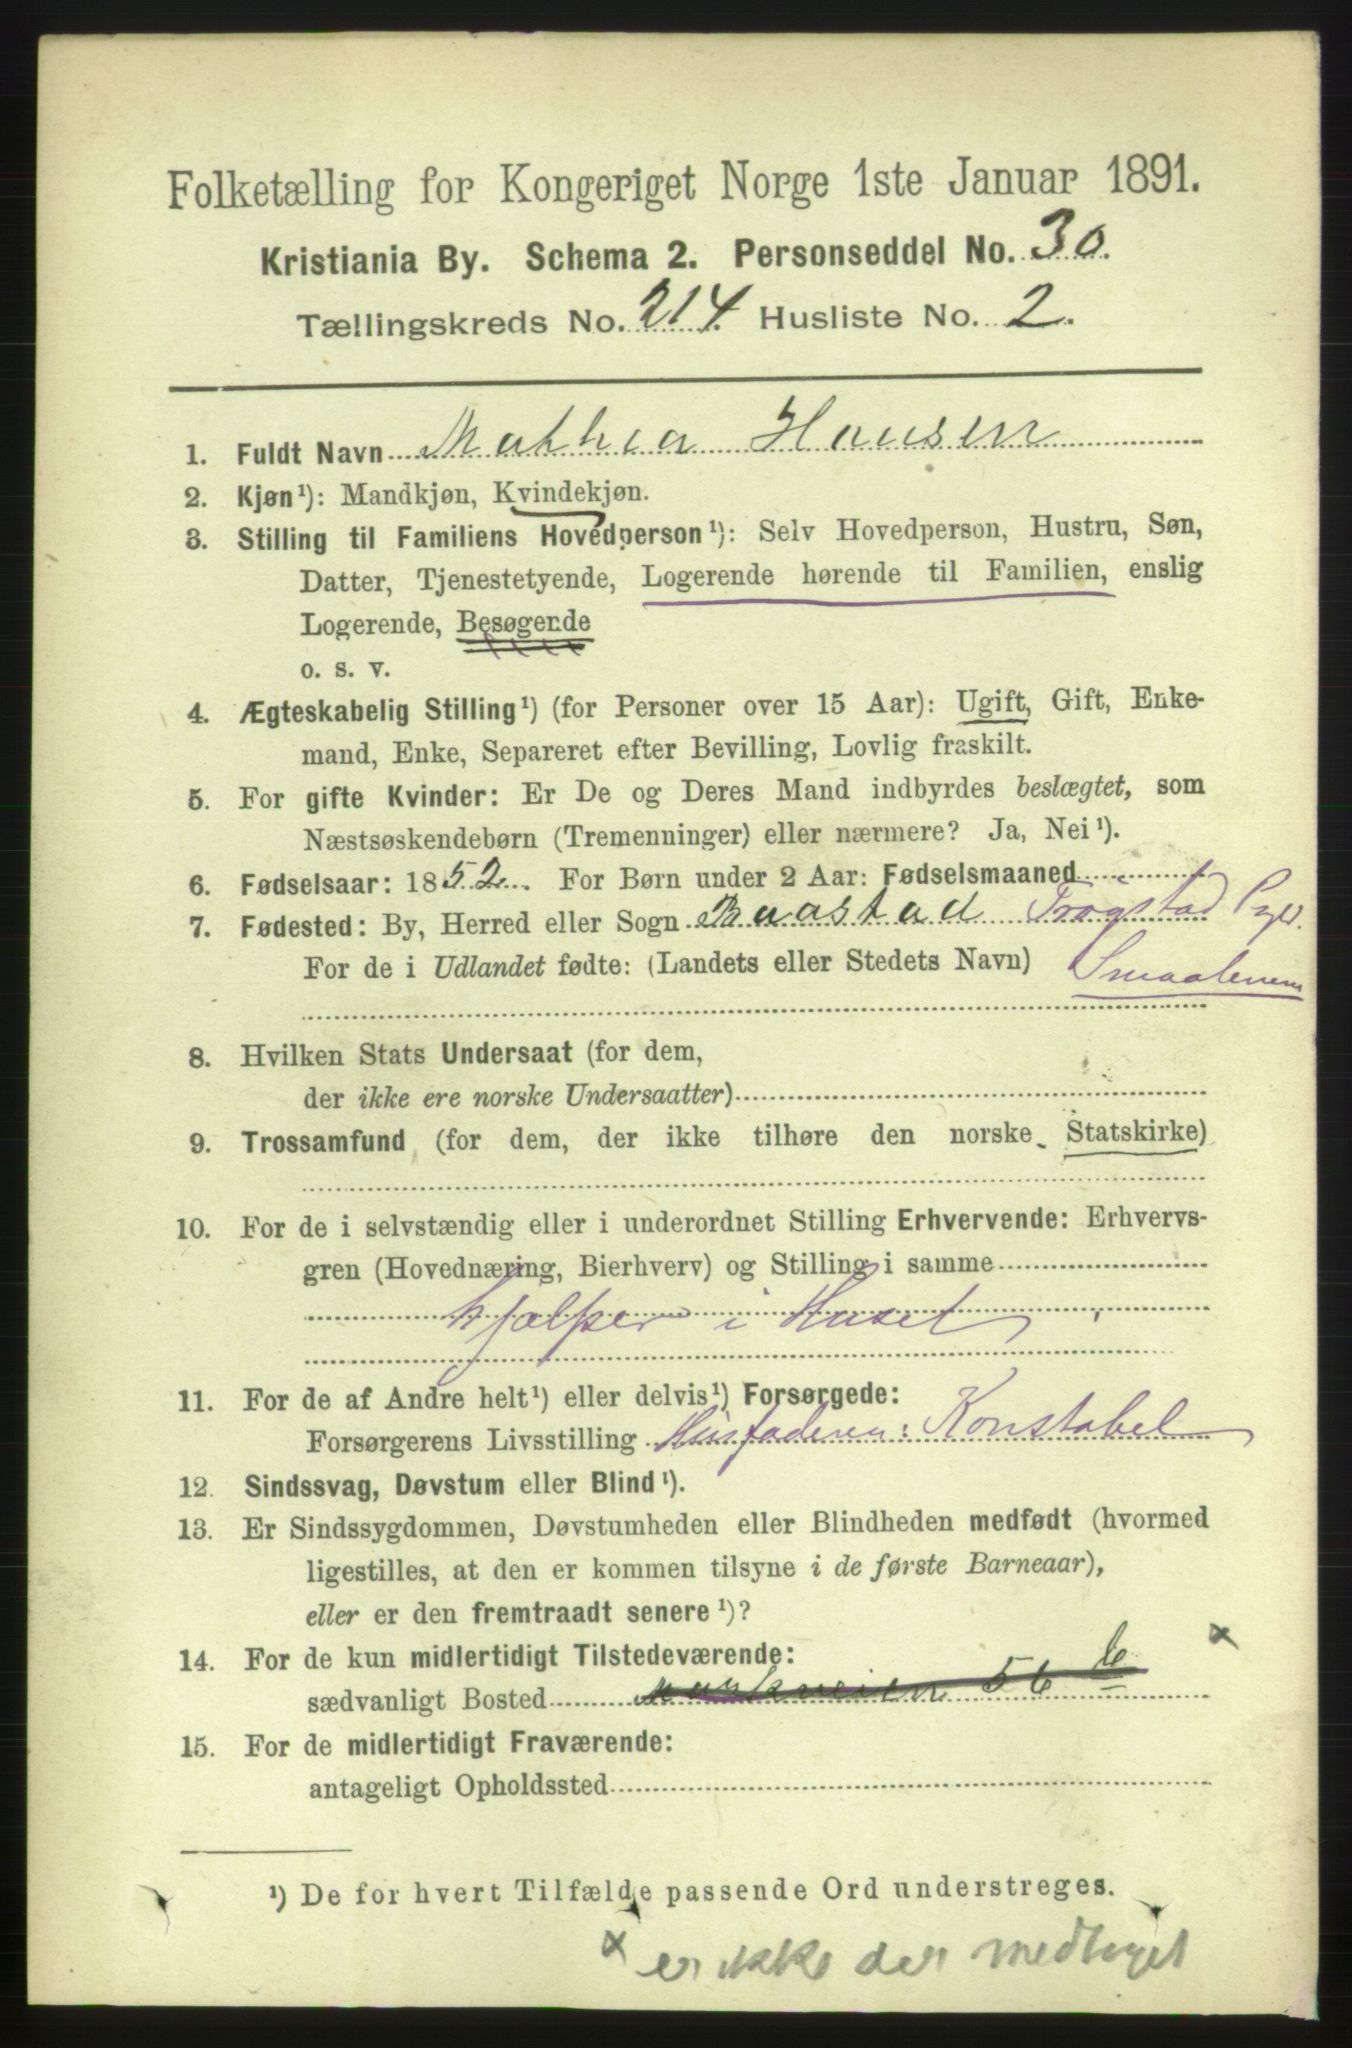 Folketælling for Kongeriget Norge 1ste Januar 1891.
Kristiania By. Schema 2. Personseddel No. 30.
Tællingskreds No. 214. Husliste No. 2.
1. Fuldt Navn Mathea Hansen
2. Kjøn¹): Mandkjøn, Kvindekjøn.
3. Stilling til Familiens Hovedperson¹): Selv Hovedperson, Hustru, Søn,
Datter, Tjenestetyende, Logerende hørende til Familien, enslig
Logerende, Besøgende
o. s. v.
4. Ægteskabelig Stilling¹) (for Personer over 15 Aar): Ugift, Gift, Enke-
mand, Enke, Separeret efter Bevilling, Lovlig fraskilt.
5. For gifte Kvinder: Er De og Deres Mand indbyrdes beslægtet, som
Næstsøskendebørn (Tremenninger) eller nærmere? Ja, Nei¹).
6. Fødselsaar: 1852. For Børn under 2 Aar: Fødselsmaaned
7. Fødested: By, Herred eller Sogn Baastad Trøgstad Pgld.
For de i Udlandet fødte: (Landets eller Stedets Navn) Smaalenene
8. Hvilken Stats Undersaat (for dem,
der ikke ere norske Undersaatter)
9. Trossamfund (for dem, der ikke tilhøre den norske Statskirke)
10. For de i selvstændig eller i underordnet Stilling Erhvervende: Erhvervs-
gren (Hovednæring, Bierhverv) og Stilling i samme
hjælper i Huset
11. For de af Andre helt¹) eller delvis¹) Forsørgede:
Forsørgerens Livsstilling Husfaderen: Konstabel
12. Sindssvag, Døvstum eller Blind¹).
13. Er Sindssygdommen, Døvstumheden eller Blindheden medfødt (hvormed
ligestilles, at den er kommen tilsyne i de første Barneaar),
eller er den fremtraadt senere¹)?
14. For de kun midlertidigt Tilstedeværende: x
sædvanligt Bosted Markveien 56 b
15. For de midlertidigt Fraværende:
antageligt Opholdssted
¹) De for hvert Tilfælde passende Ord understreges.
x er ikke der medtaget